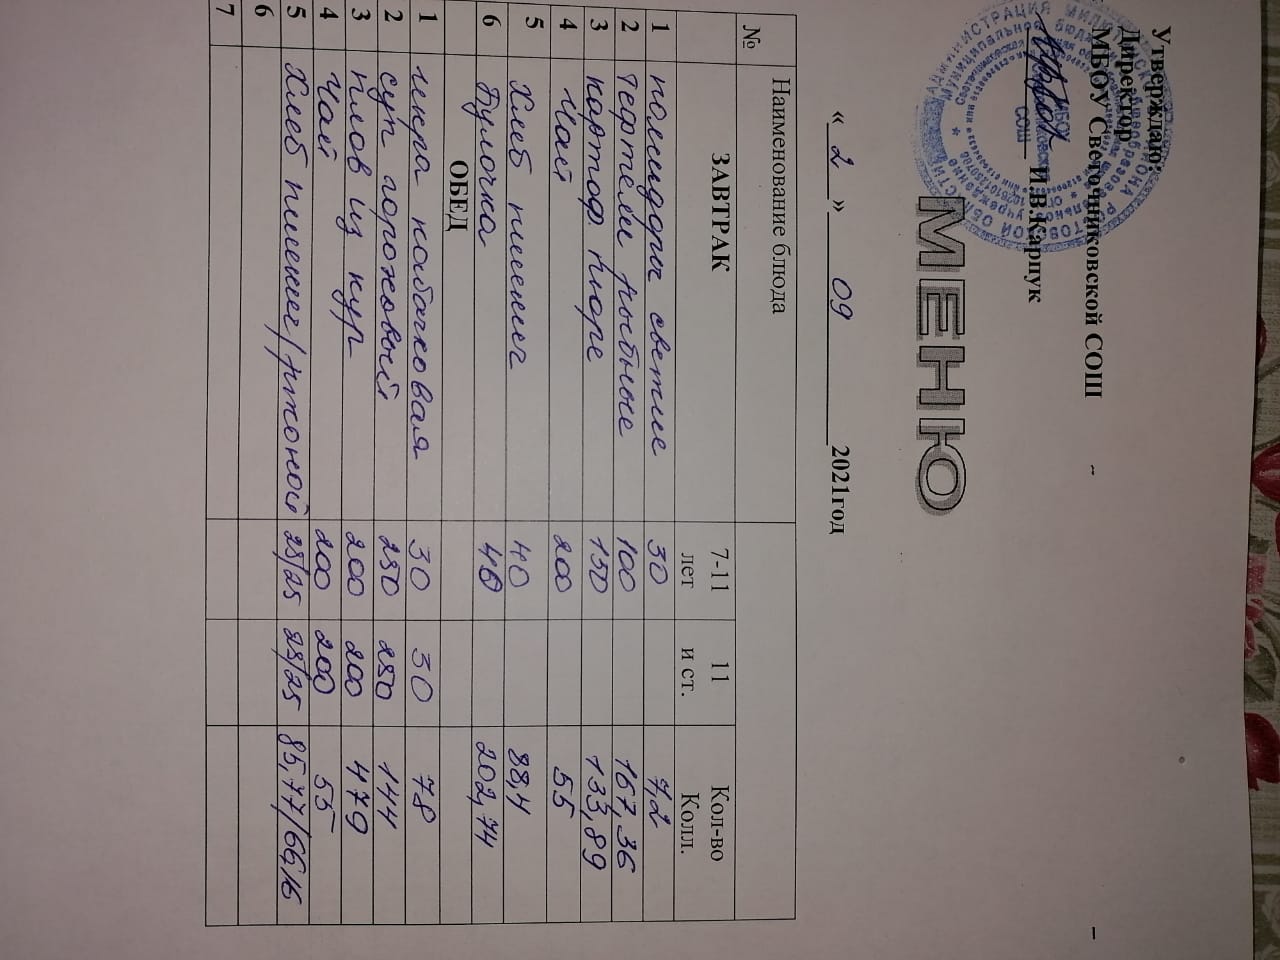 Утверждаю:
Директор
МБОУ Светочниковской СОШ
И.В.Карпук
МЕНЮ
« 2 » 09 2021год
№ Наименование блюда
ЗАВТРАК 7-11 лет 11 и ст. Кол-во Колл.
1 помидоры светие 30 7,2
2 тефтели рыбные 100 167,36
3 картоф пюре 150 133,89
4 Чай 200 55
5 Хлеб пшениг 40 88,4
6 Булочка 40 202,74
ОБЕД
1 икра кабачковая 30 30 78
2 суп гороховый 250 250 144
3 плов из кур 200 200 479
4 Чай 200 200 55
5 Хлеб пшениг/ржаной 25/25 25/25 85,77/66,16
6
7